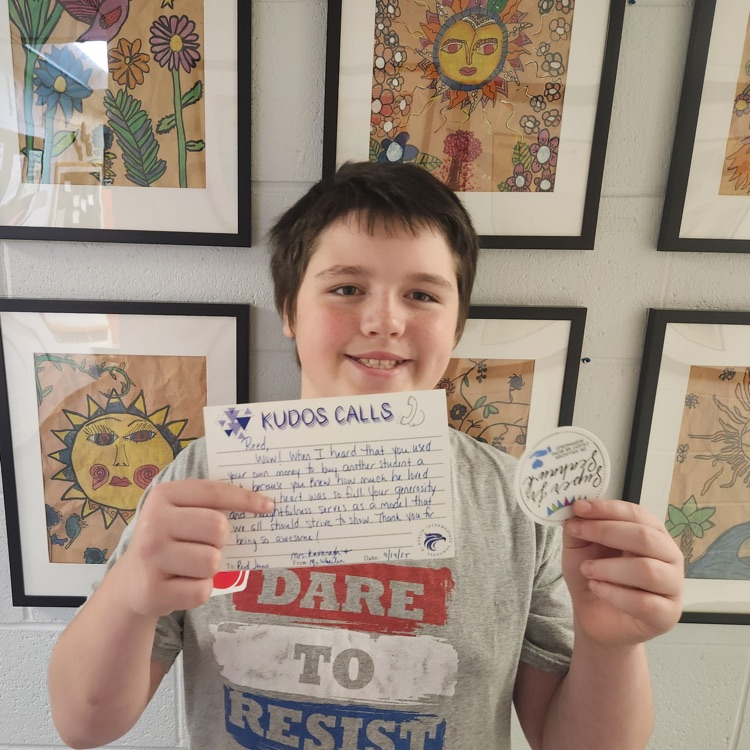 KUDOS CALLS
Reed,
Wow! When I heard that you used
your own money to buy another student a
because you knew how much he loved
heart was so full. Your generosity
and thoughtfulness serves as a model that
we all should strive to show. Thank you for
being so awesome!
Mrs. Kavanagh +
To: Reed From: Date: 9/19/25
Super
Seahawk
DARE
TO
RESIST